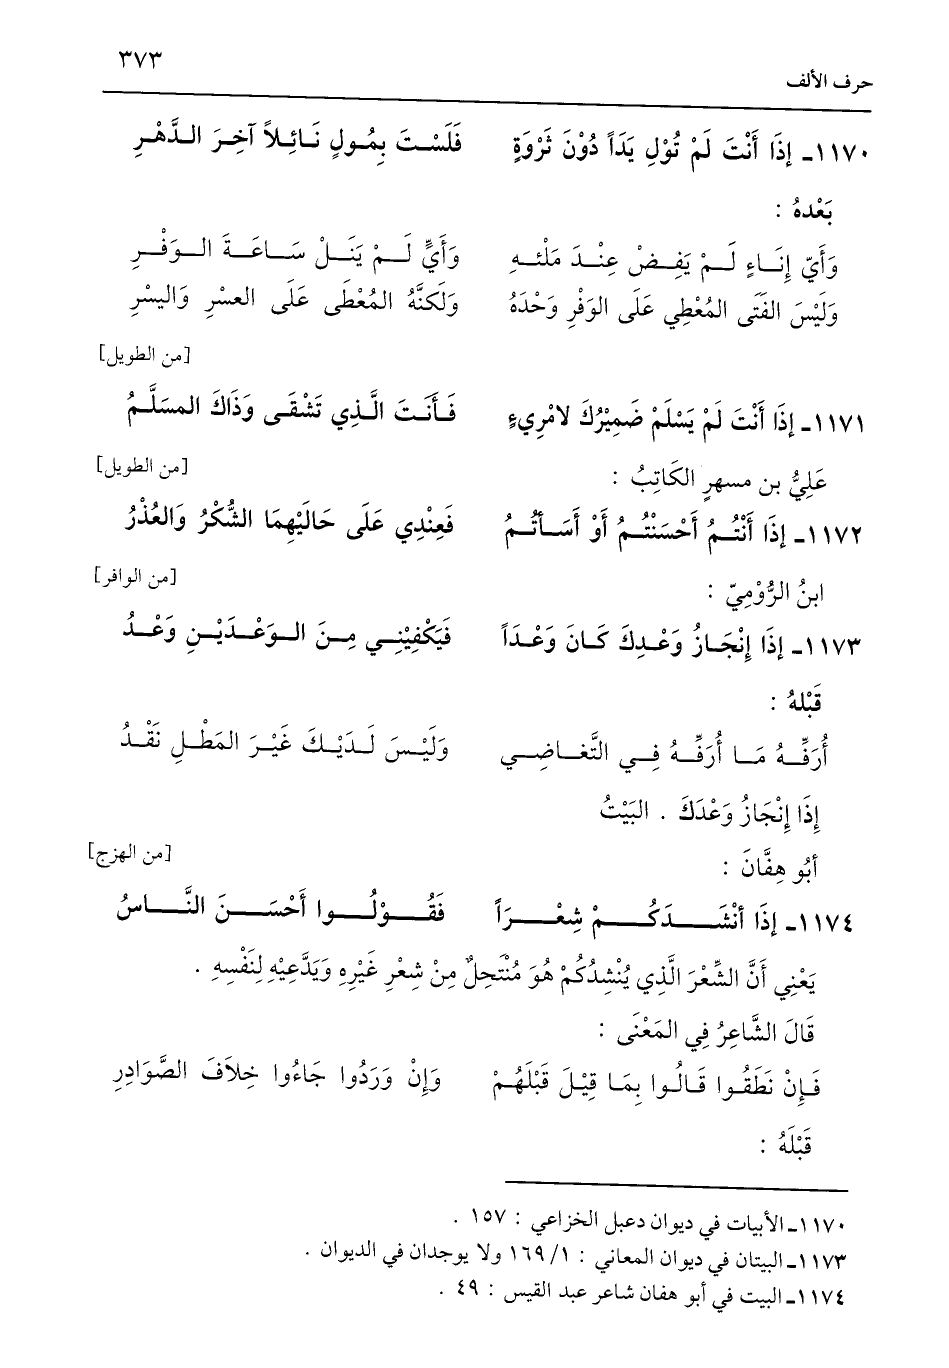 ٣٧٣
حرف الألف
١١٧٠ـ إذَا أَنْتَ لَمْ تُوْلِ يَدَاً دُوْنَ ثَرْوَةٍ فَلَسْتَ بِمُولٍ نَائِلاً آخِرَ الدَّهْرِ
بَعْدهُ :
وَأَيّ إِنَاءٍ لَمْ يَفِضْ عِنْدَ مَلْئهِ وَأَيٍّ لَمْ يَنَلْ سَاعَةَ الوَفْرِ
وَلَيْسَ الفَتَى المُعْطِي عَلَى الوَفْرِ وَحْدَهُ وَلَكنَّهُ المُعْطَى عَلَى العسْرِ وَاليسْرِ
[من الطويل]
١١٧١ـ إذَا أَنْتَ لَمْ يَسْلَمْ ضَمِيْرُكَ لامْرِيءٍ فَأَنتَ الَّذِي تَشْقَى وَذَاكَ المسَلَّمُ
[من الطويل]
عَلِيُّ بن مسهرٍ الكَاتِبُ :
١١٧٢ـ إذَا أَنْتُمُ أَحْسَنْتُمُ أَوْ أَسَأتُمُ فَعِنْدِي عَلَى حَالَيْهِمَا الشُّكْرُ وَالعُذْرُ
[من الوافر]
ابنُ الرُّوْمِيّ :
١١٧٣ـ إذَا إِنْجَازُ وَعْدِكَ كَانَ وَعْدَاً فَيَكْفِيْنِي مِنَ الوَعْدَيْنِ وَعْدُ
قَبْلهُ :
أُرَفِّهُ مَا أُرَفِّهُ فِي التَّغَاضِي وَلَيْسَ لَدَيْكَ غَيْرَ المَطْلِ نَقْدُ
إِذَا إِنْجَازُ وَعْدَكَ . البَيْتُ
[من الهزج]
أبُو هِفَّانَ :
١١٧٤ـ إذَا أنْشَدَكُمْ شِعْرَاً فَقُوْلُوا أَحْسَنَ النَّاسُ
يَعْنِي أَنَّ الشِّعْرَ الَّذِي يُنْشِدُكُمْ هُوَ مُنْتَحِلٌ مِنْ شِعْرِ غَيْرِهِ وَيَدَّعِيْهِ لِنَفْسِهِ .
قَالَ الشَّاعِرُ فِي المَعْنَى :
فَإِنْ نَطَقُوا قَالُوا بِمَا قِيْلَ قَبْلَهُمْ وَإِنْ وَرَدُوا جَاءُوا خِلاَفَ الصَّوَادِرِ
قَبْلَهُ :
١١٧٠ـ الأبيات في ديوان دعبل الخزاعي : ١٥٧ .
١١٧٣ـ البيتان في ديوان المعاني : ١/ ١٦٩ ولا يوجدان في الديوان .
١١٧٤ـ البيت في أبو هفان شاعر عبد القيس : ٤٩ .